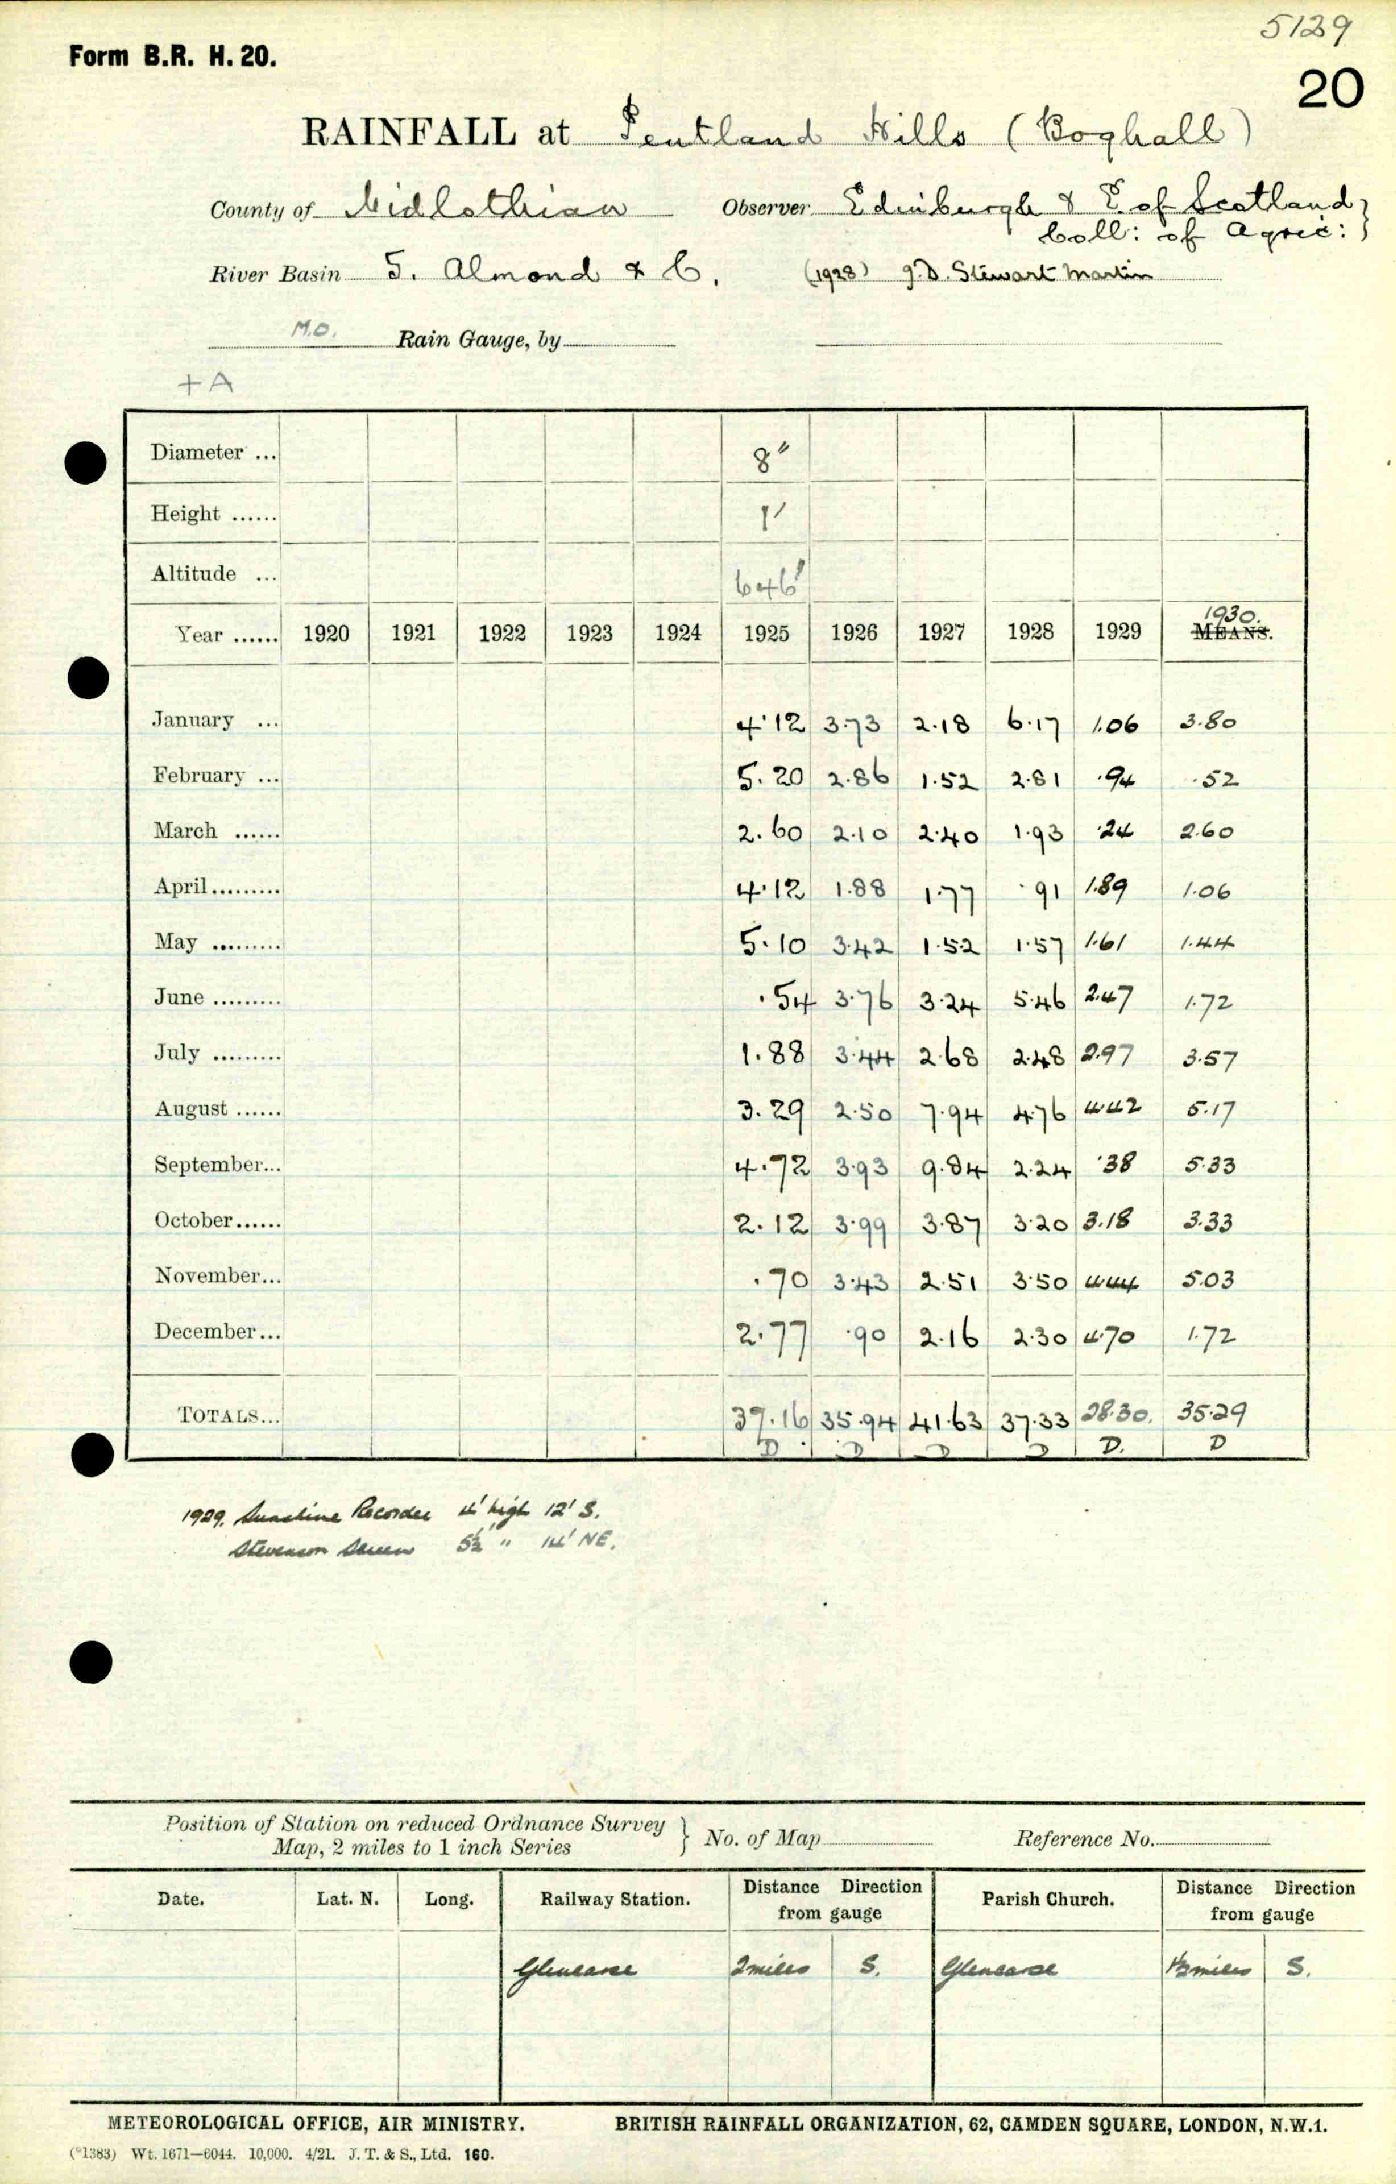 5129
Form B.R. H. 20.
20
RAINFALL at Pentland Hills (Boghall)
County of Midlothian Observer Edinburgh & E. of Scotland }
Coll: of Agric: }
River Basin 5. Almond & C. (1928) J.D. Stewart Martin
M.O. Rain Gauge, by
+A
Diameter ... 8"
Height ...... 1'
Altitude ... 646'
Year ...... 1920 1921 1922 1923 1924 1925 1926 1927 1928 1929 1930. MEANS.
January ... 4.12 3.73 2.18 6.17 1.06 3.80
February ... 5.20 2.86 1.52 2.81 .94 .52
March ...... 2.60 2.10 2.40 1.93 .24 2.60
April......... 4.12 1.88 1.77 .91 1.89 1.06
May ......... 5.10 3.42 1.52 1.57 1.61 1.44
June ......... .54 3.76 3.24 5.46 2.47 1.72
July ......... 1.88 3.44 2.68 2.48 2.97 3.57
August ...... 3.29 2.50 7.94 4.76 4.42 5.17
September... 4.72 3.93 9.84 2.24 .38 5.33
October...... 2.12 3.99 3.87 3.20 3.18 3.33
November... .70 3.43 2.51 3.50 4.44 5.03
December... 2.77 .90 2.16 2.30 4.70 1.72
TOTALS... 37.16 35.94 41.63 37.33 28.30. 35.29
D D D D D. D
1929. Sunshine Recorder 4' high 12' S.
Stevenson Screen 5½' " 14' NE.
Position of Station on reduced Ordnance Survey } No. of Map Reference No.
Map, 2 miles to 1 inch Series
Date. Lat. N. Long. Railway Station. Distance Direction from gauge Parish Church. Distance Direction from gauge
Glencorse 2 miles S. Glencorse 1½ miles S.
METEOROLOGICAL OFFICE, AIR MINISTRY. BRITISH RAINFALL ORGANIZATION, 62, CAMDEN SQUARE, LONDON, N.W.1.
(*1383) Wt. 1671—6044. 10,000. 4/21. J. T. & S., Ltd. 160.